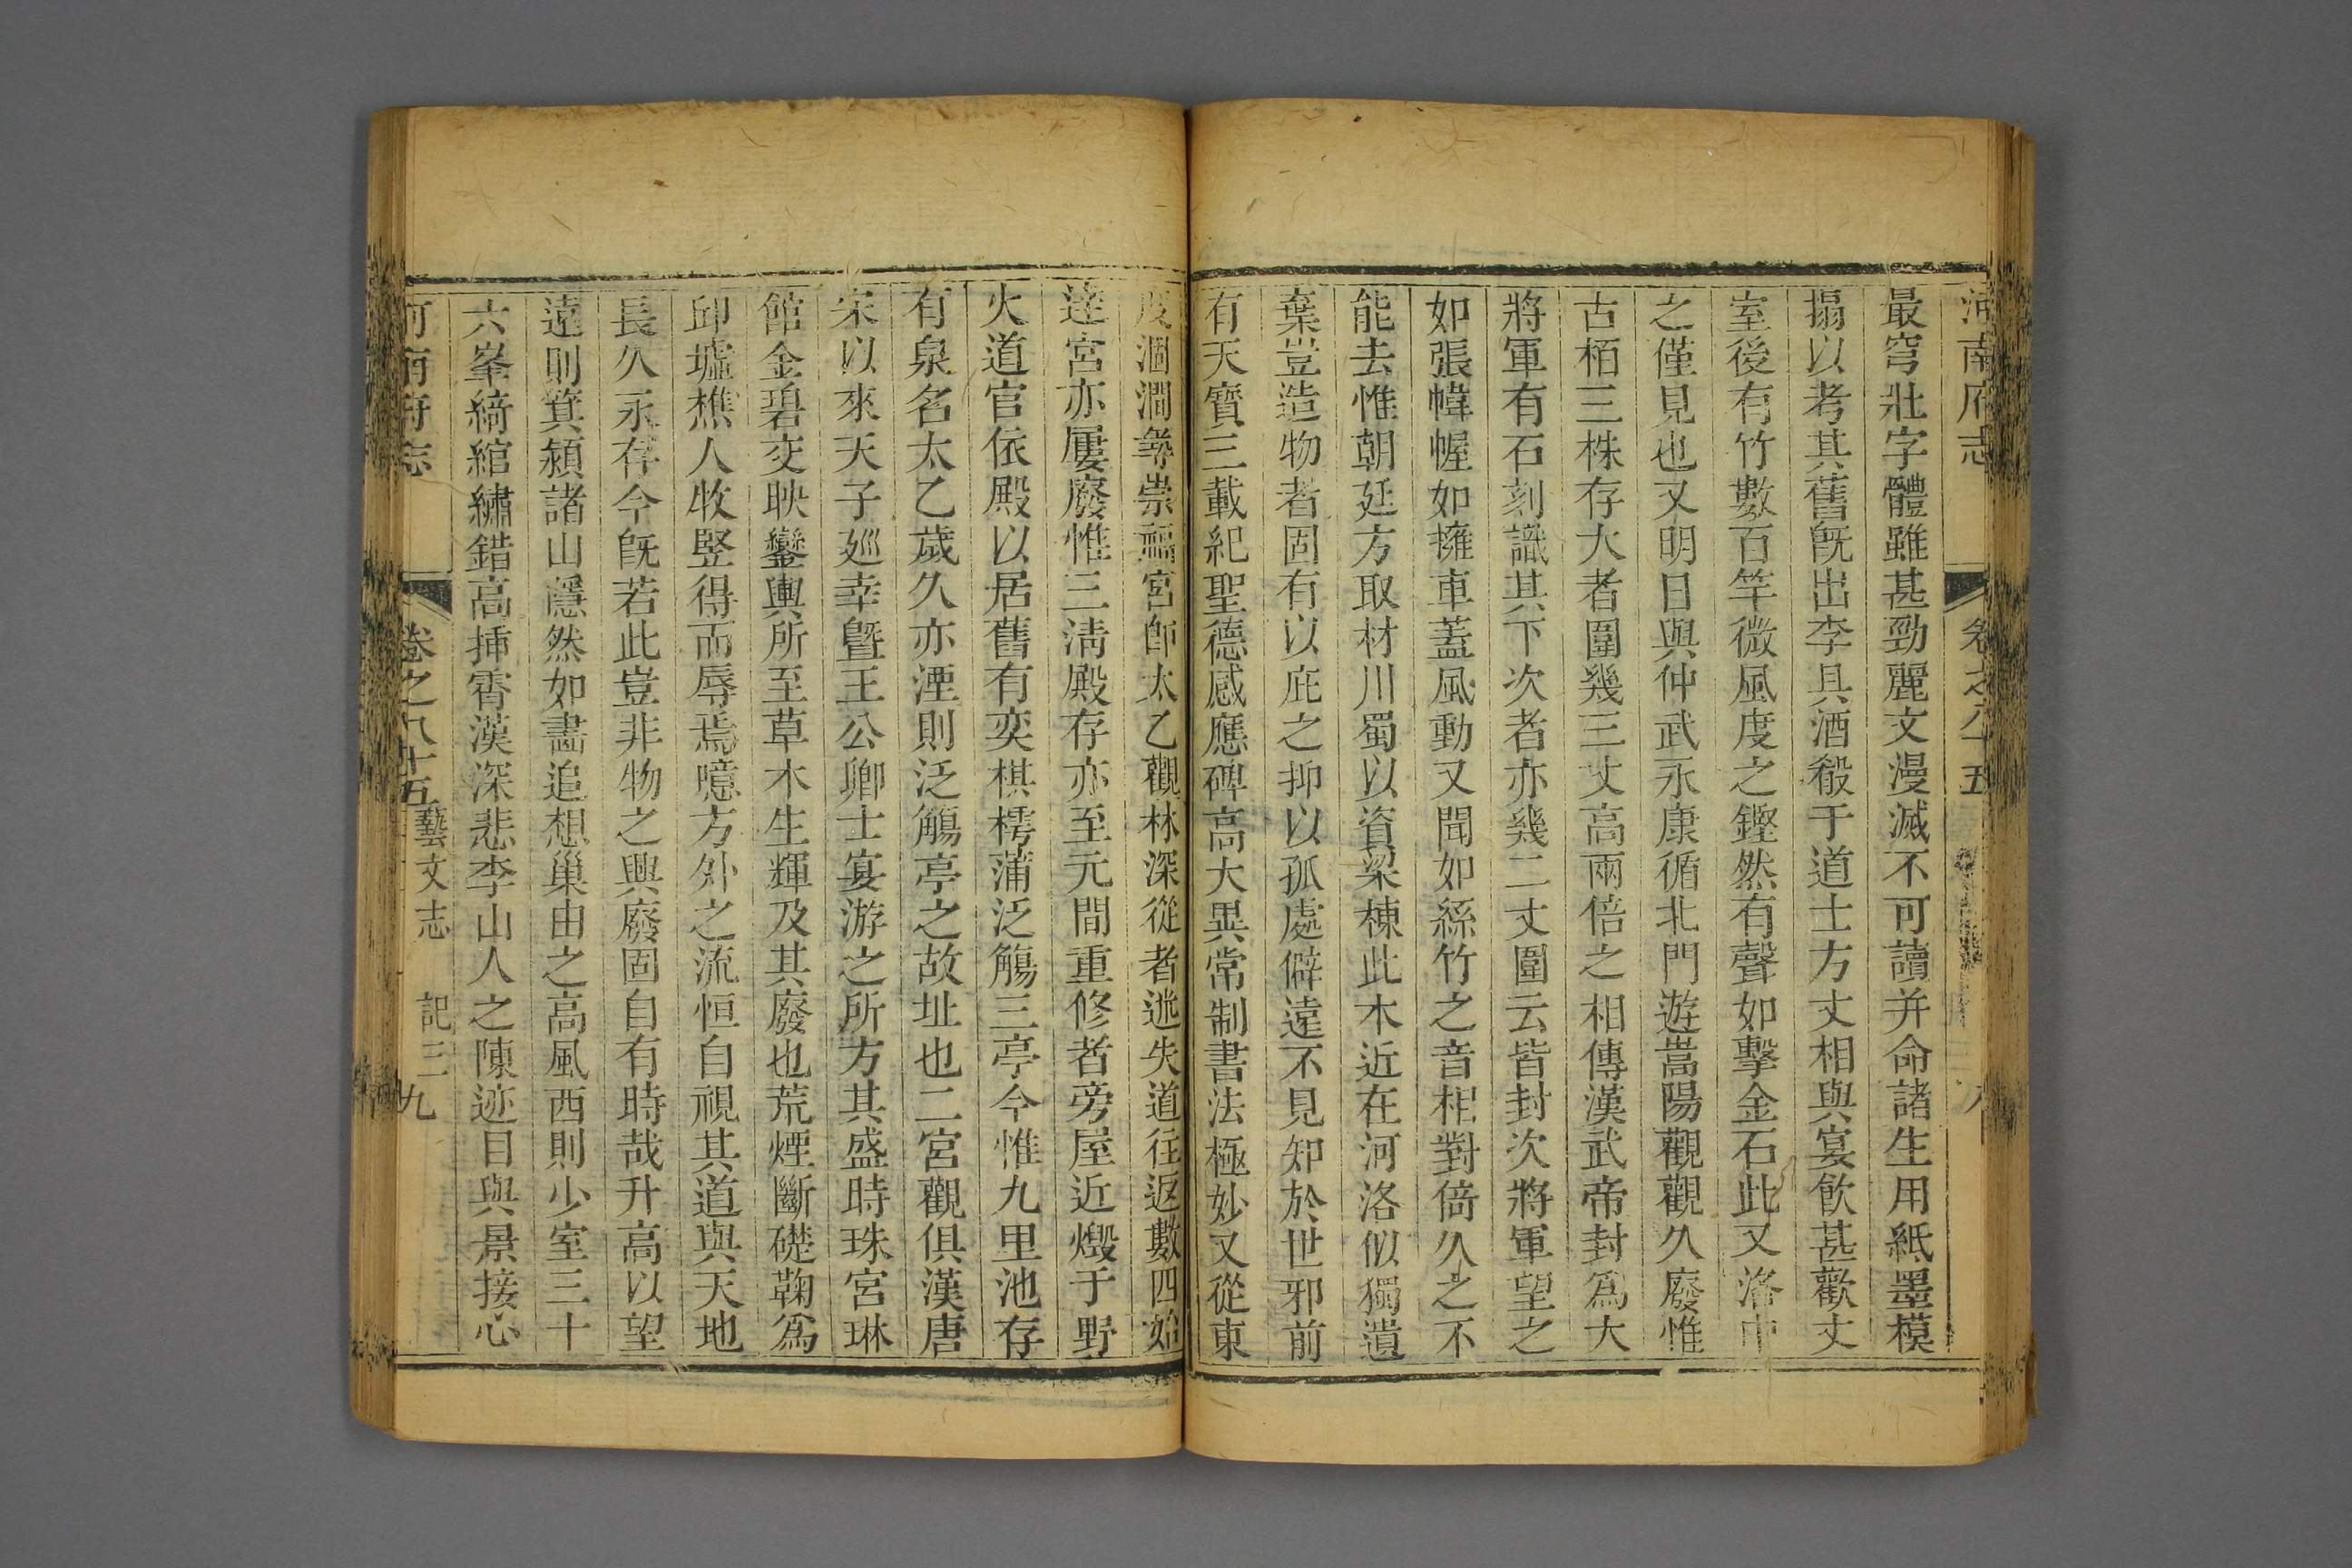 河南府志 卷之八十五 八
最穹壯字體雖甚勁麗文漫滅不可讀并命諸生用紙墨模
搨以考其舊旣出李具酒殽于道士方丈相與宴飮甚歡丈
室後有竹數百竿微風度之鏗然有聲如擊金石此又洛中
之僅見也又明日與仲武永康循北門遊嵩陽觀觀久廢惟
古栢三株存大者圍幾三丈高兩倍之相傳漢武帝封爲大
將軍有石刻識其下次者亦幾二丈圍云皆封次將軍望之
如張幃幄如擁車蓋風動又聞如絲竹之音相對倚久之不
能去惟朝廷方取材川蜀以資梁棟此木近在河洛似獨遺
棄豈造物者固有以庇之抑以孤處僻遠不見知於世邪前
有天寶三載紀聖德感應碑高大異常制書法極妙又從東
度澗澗彝崇福宮卽太乙觀林深從者迷失道往返數四始
逹宮亦屢廢惟三清殿存亦至元間重修者旁屋近燬于野
火道官依殿以居舊有奕棋樗蒲泛觴三亭今惟九里池存
有泉名太乙歲久亦湮則泛觴亭之故址也二宮觀俱漢唐
宋以來天子廵幸曁王公卿士宴游之所方其盛時珠宮琳
館金碧交映鑾輿所至草木生輝及其廢也荒煙斷礎鞠爲
邱墟樵人牧竪得而辱焉噫方外之流恒自視其道與天地
長久永存今旣若此豈非物之興廢固自有時哉升高以望
遠則箕潁諸山隱然如畵追想巢由之高風西則少室三十
六峯綺綰繡錯高挿霄漢深悲李山人之陳迹目與景接心
河南府志 卷之八十五 藝文志 記三 九